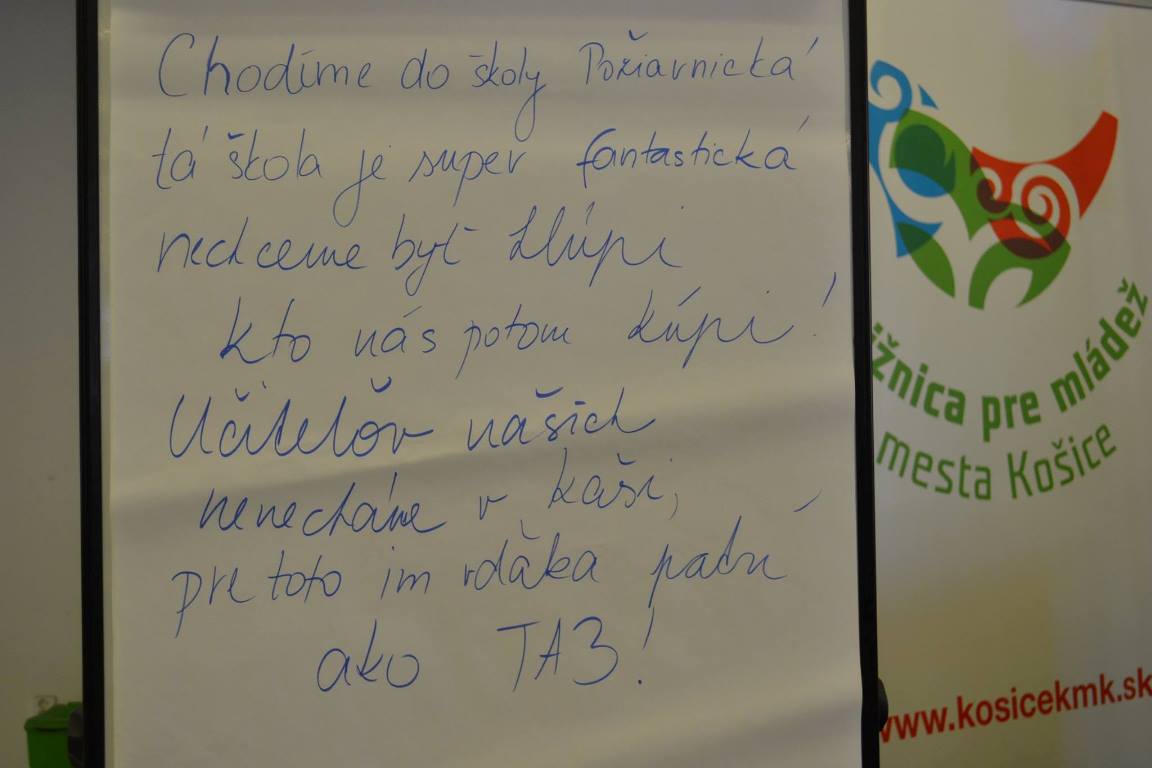 Chodíme do školy Požiarnická
tá škola je super fantastická
nechceme byť hlúpi
kto nás potom kúpi!
Učiteľov našich
nenecháme v kaši,
pre toto im vďaka patrí
ako TAZ!
ižnica pre mládež
mesta Košice
www.kosicekmk.sk